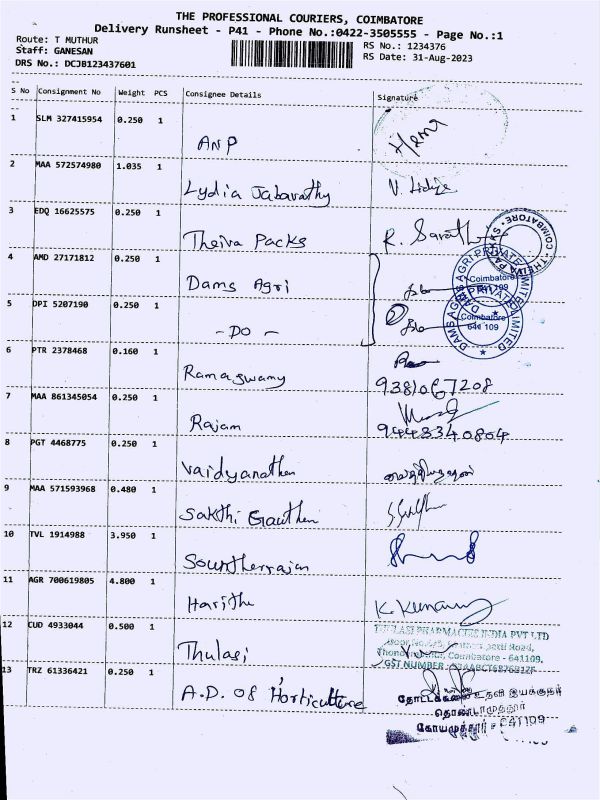 THE PROFESSIONAL COURIERS, COIMBATORE
Delivery Runsheet - P41 - Phone No.:0422-3505555 - Page No.:1
Route: T MUTHUR
Staff: GANESAN
DRS No.: DCJB123437601
RS No.: 1234376
RS Date: 31-Aug-2023
S No Consignment No Weight PCS Consignee Details Signature
1 SLM 327415954 0.250 1
ANP
2 MAA 572574980 1.035 1
Lydia Jabavathy
3 EDQ 16625575 0.250 1
Theiva Packs R. Sarath
COIMBATORE THEIVA PACKS
4 AMD 27171812 0.250 1
Dams Agri
DAMS AGRI PRIVATE LIMITED
Coimbatore
641 109
5 DPI 5207190 0.250 1
- DO -
DAMS AGRI PRIVATE LIMITED
Coimbatore
641 109
6 PTR 2378468 0.160 1
Ramaswamy 9381067208
7 MAA 861345054 0.250 1
Rajam 9443340804
8 PGT 4468775 0.250 1
Vaidyanathan
9 MAA 571593968 0.480 1
Sakthi Gauthan
10 TVL 1914988 3.950 1
Sountherrajan
11 AGR 700619805 4.800 1
Haritha
12 CUD 4933044 0.500 1
Thulasi
THULASI PHARMACIES INDIA PVT LTD
Road,
Coimbatore - 641109,
GST NUMBER
13 TRZ 61336421 0.250 1
A.D. Of Horticulture
உதவி இயக்குநர்
தொண்டாமுத்தூர்
கோயமுத்தூர் - 641109